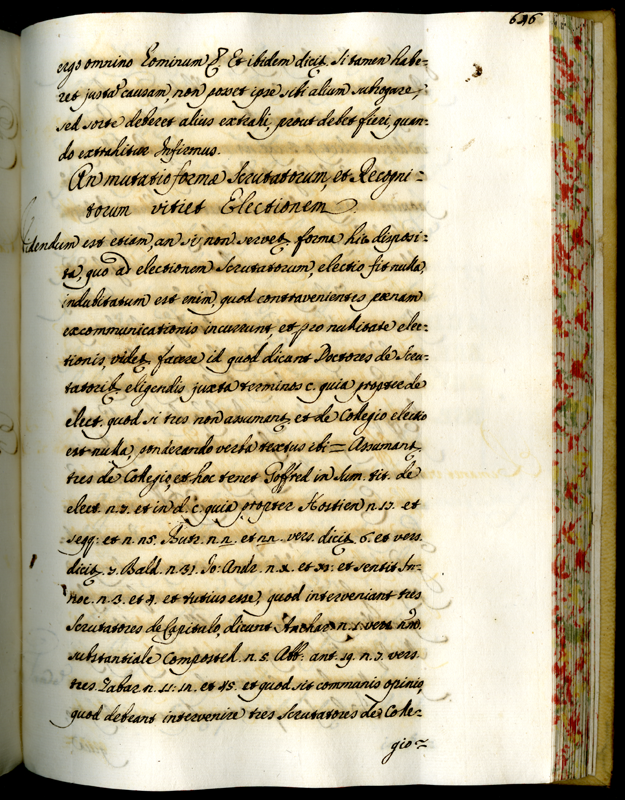 646
ergo omnino hominum &. Et ibidem dicit, si tamen habe=
ret justã causam, non posset ipse sibi alium subrogare,
sed sorte deberet alius extrahi, prout debet fieri, quan=
do extrahitur Infirmus.
An mutatio formæ Scrutatorum, et Recogni=
torum vitiet Electionem.
Videndum est etiam, an si non servet forma hic disposi=
ta, quo ad electionem Scrutatorum, electio sit nulla,
indubitatum est enim, quod contravenientes pœnam
excommunicationis incurrunt et pro nullitate elec=
tionis, videt facere id quod dicunt Doctores de Scru=
tatorib eligendis juxta terminos c. quia propter de
elect. quod si tres non assumant, et de Collegio electio
est nulla, ponderando verba textus ibi = Assumant
tres de Collegio, et hoc tenet Goffred in sum. tit. de
elect. n. 7. et in d. c. quia propter Hostien n. 17. et
seqq: et n. n5. Butr. n. n. et nn. vers. dicit 6. et vers.
dicit 7. Bald. n. 31. Jo: Andr. n. x. et xi: et sentit In=
noc. n. 3. et 4. et tutius esse, quod interveniant tres
Scrutatores de Capitulo, dicunt Anchar. n. 1. vers.
substantiale Compostel. n. 5. Abb: ant. 19. n. 7. vers.
tres Zabar. n. 11: 1n. et 45. et quod sit communis opinio,
quod debeant intervenire tres Scrutatores de Colle=
gio=